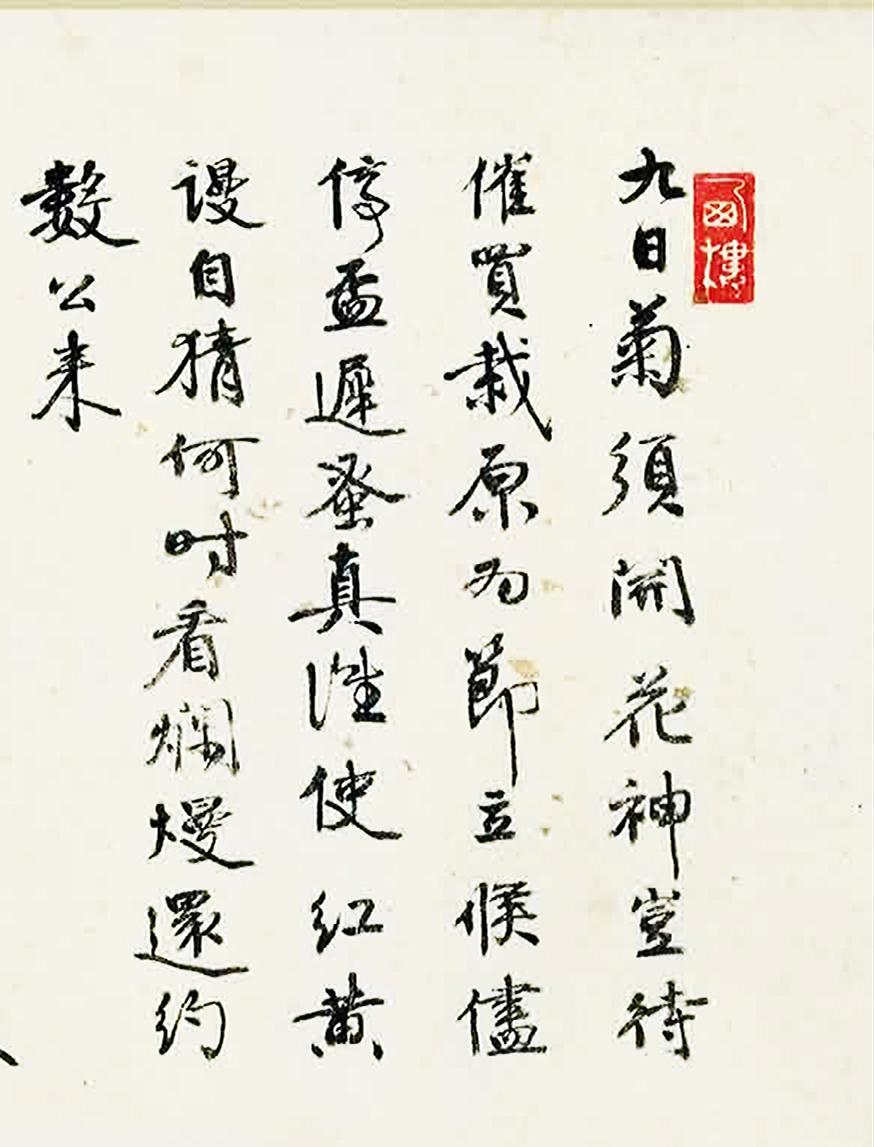 九日菊須開花神豈待
催買栽原為節立候儘
停盃遲蚤真誰使紅黃
謾自猜何時看爛熳還約
數公来